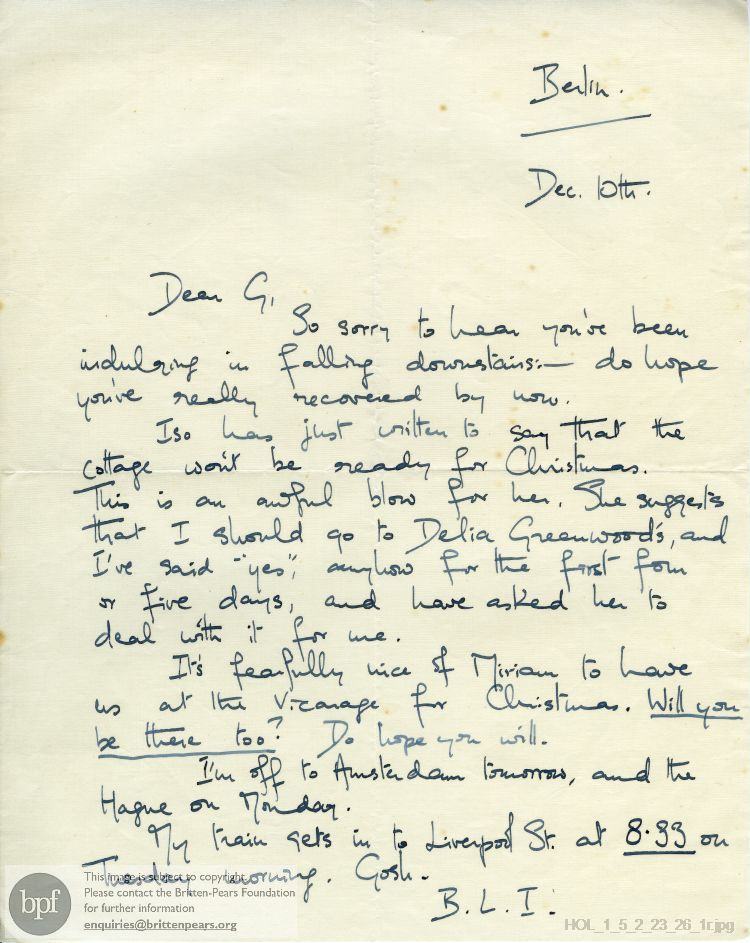 Berlin.
Dec. 10th.
Dear G,
So sorry to hear you've been
indulging in falling downstairs:— do hope
you've really recovered by now.
Iso has just written to say that the
cottage won't be ready for Christmas.
This is an awful blow for her. She suggests
that I should go to Delia Greenwood's, and
I've said "yes"; anyhow for the first four
or five days, and have asked her to
deal with it for me.
It's fearfully nice of Miriam to have
us at the Vicarage for Christmas. Will you
be there too? Do hope you will.
I'm off to Amsterdam tomorrow, and the
Hague on Monday.
My train gets in to Liverpool St. at 8.33 on
Tuesday morning. Gosh.
B.L.I.
bpf
This image is subject to copyright.
Please contact the Britten-Pears Foundation
for further information
enquiries@brittenpears.org
HOL_1_5_2_23_26_1r.jpg